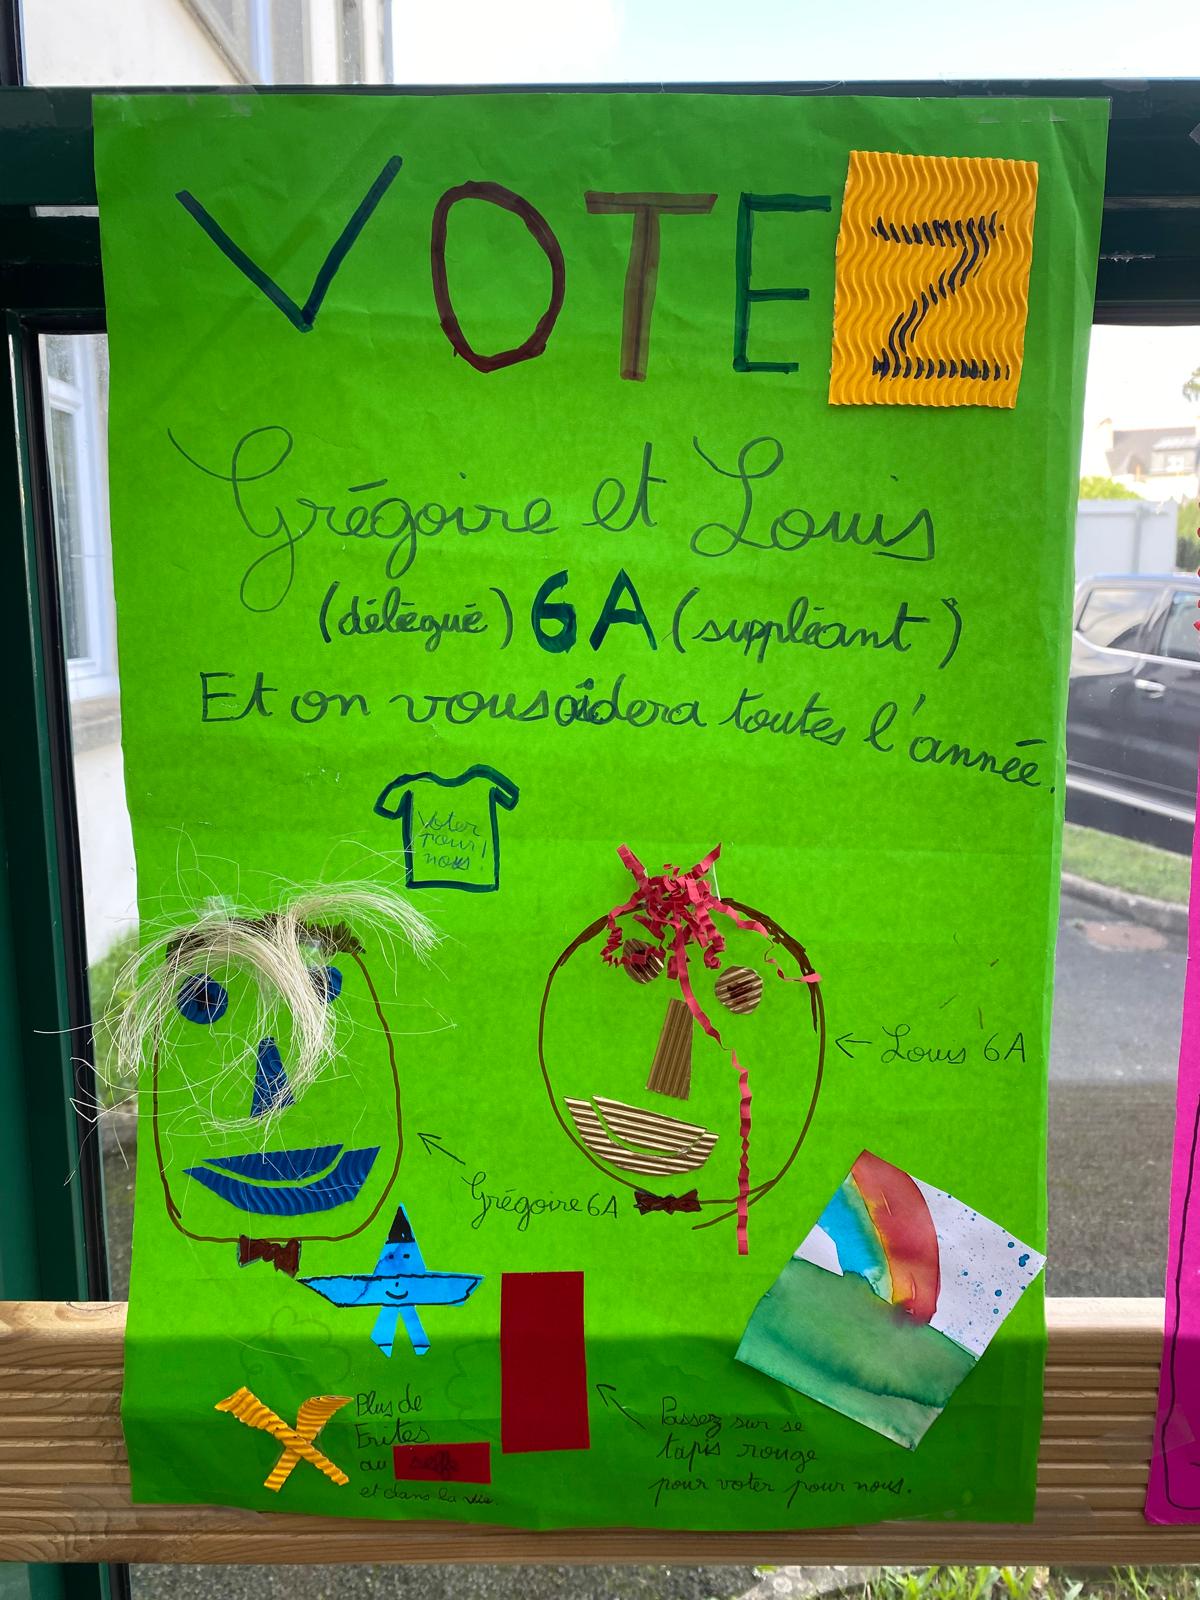 VOTEZ
Grégoire et Louis
(délégué) 6A (suppléant)
Et on vous aidera toutes l'année.
Voter
pour
nous!
Louis 6A
Grégoire 6A
Plus de
Frites
au self
et dans la vie.
Passez sur se
tapis rouge
pour voter pour nous.